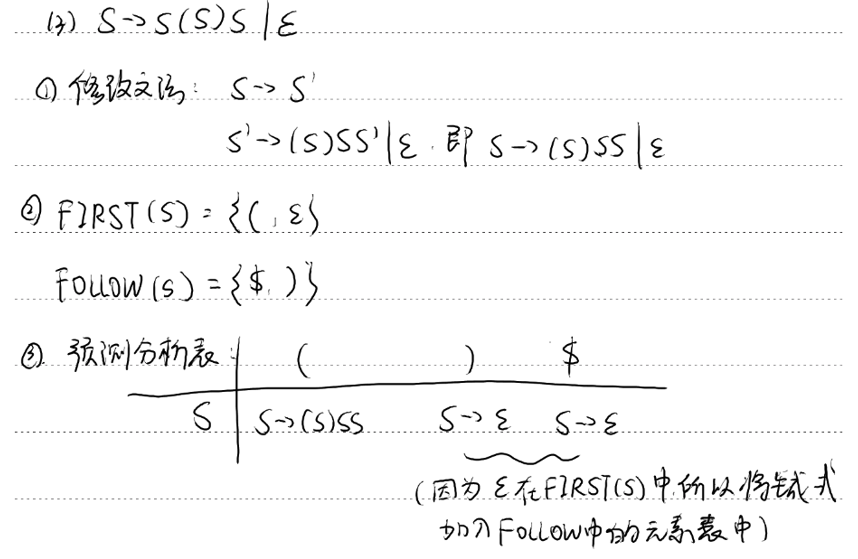 (3) S→S(S)S|ε
① 修改文法: S→S'
S'→(S)SS'|ε. 即 S→(S)SS|ε
② FIRST(S)={(, ε}
FOLLOW(S)={$, )}
③. 预测分析表: ( ) $
S S→(S)SS S→ε S→ε
(因为 ε在FIRST(S)中,所以将 式
加入FOLLOW中的元素表中)